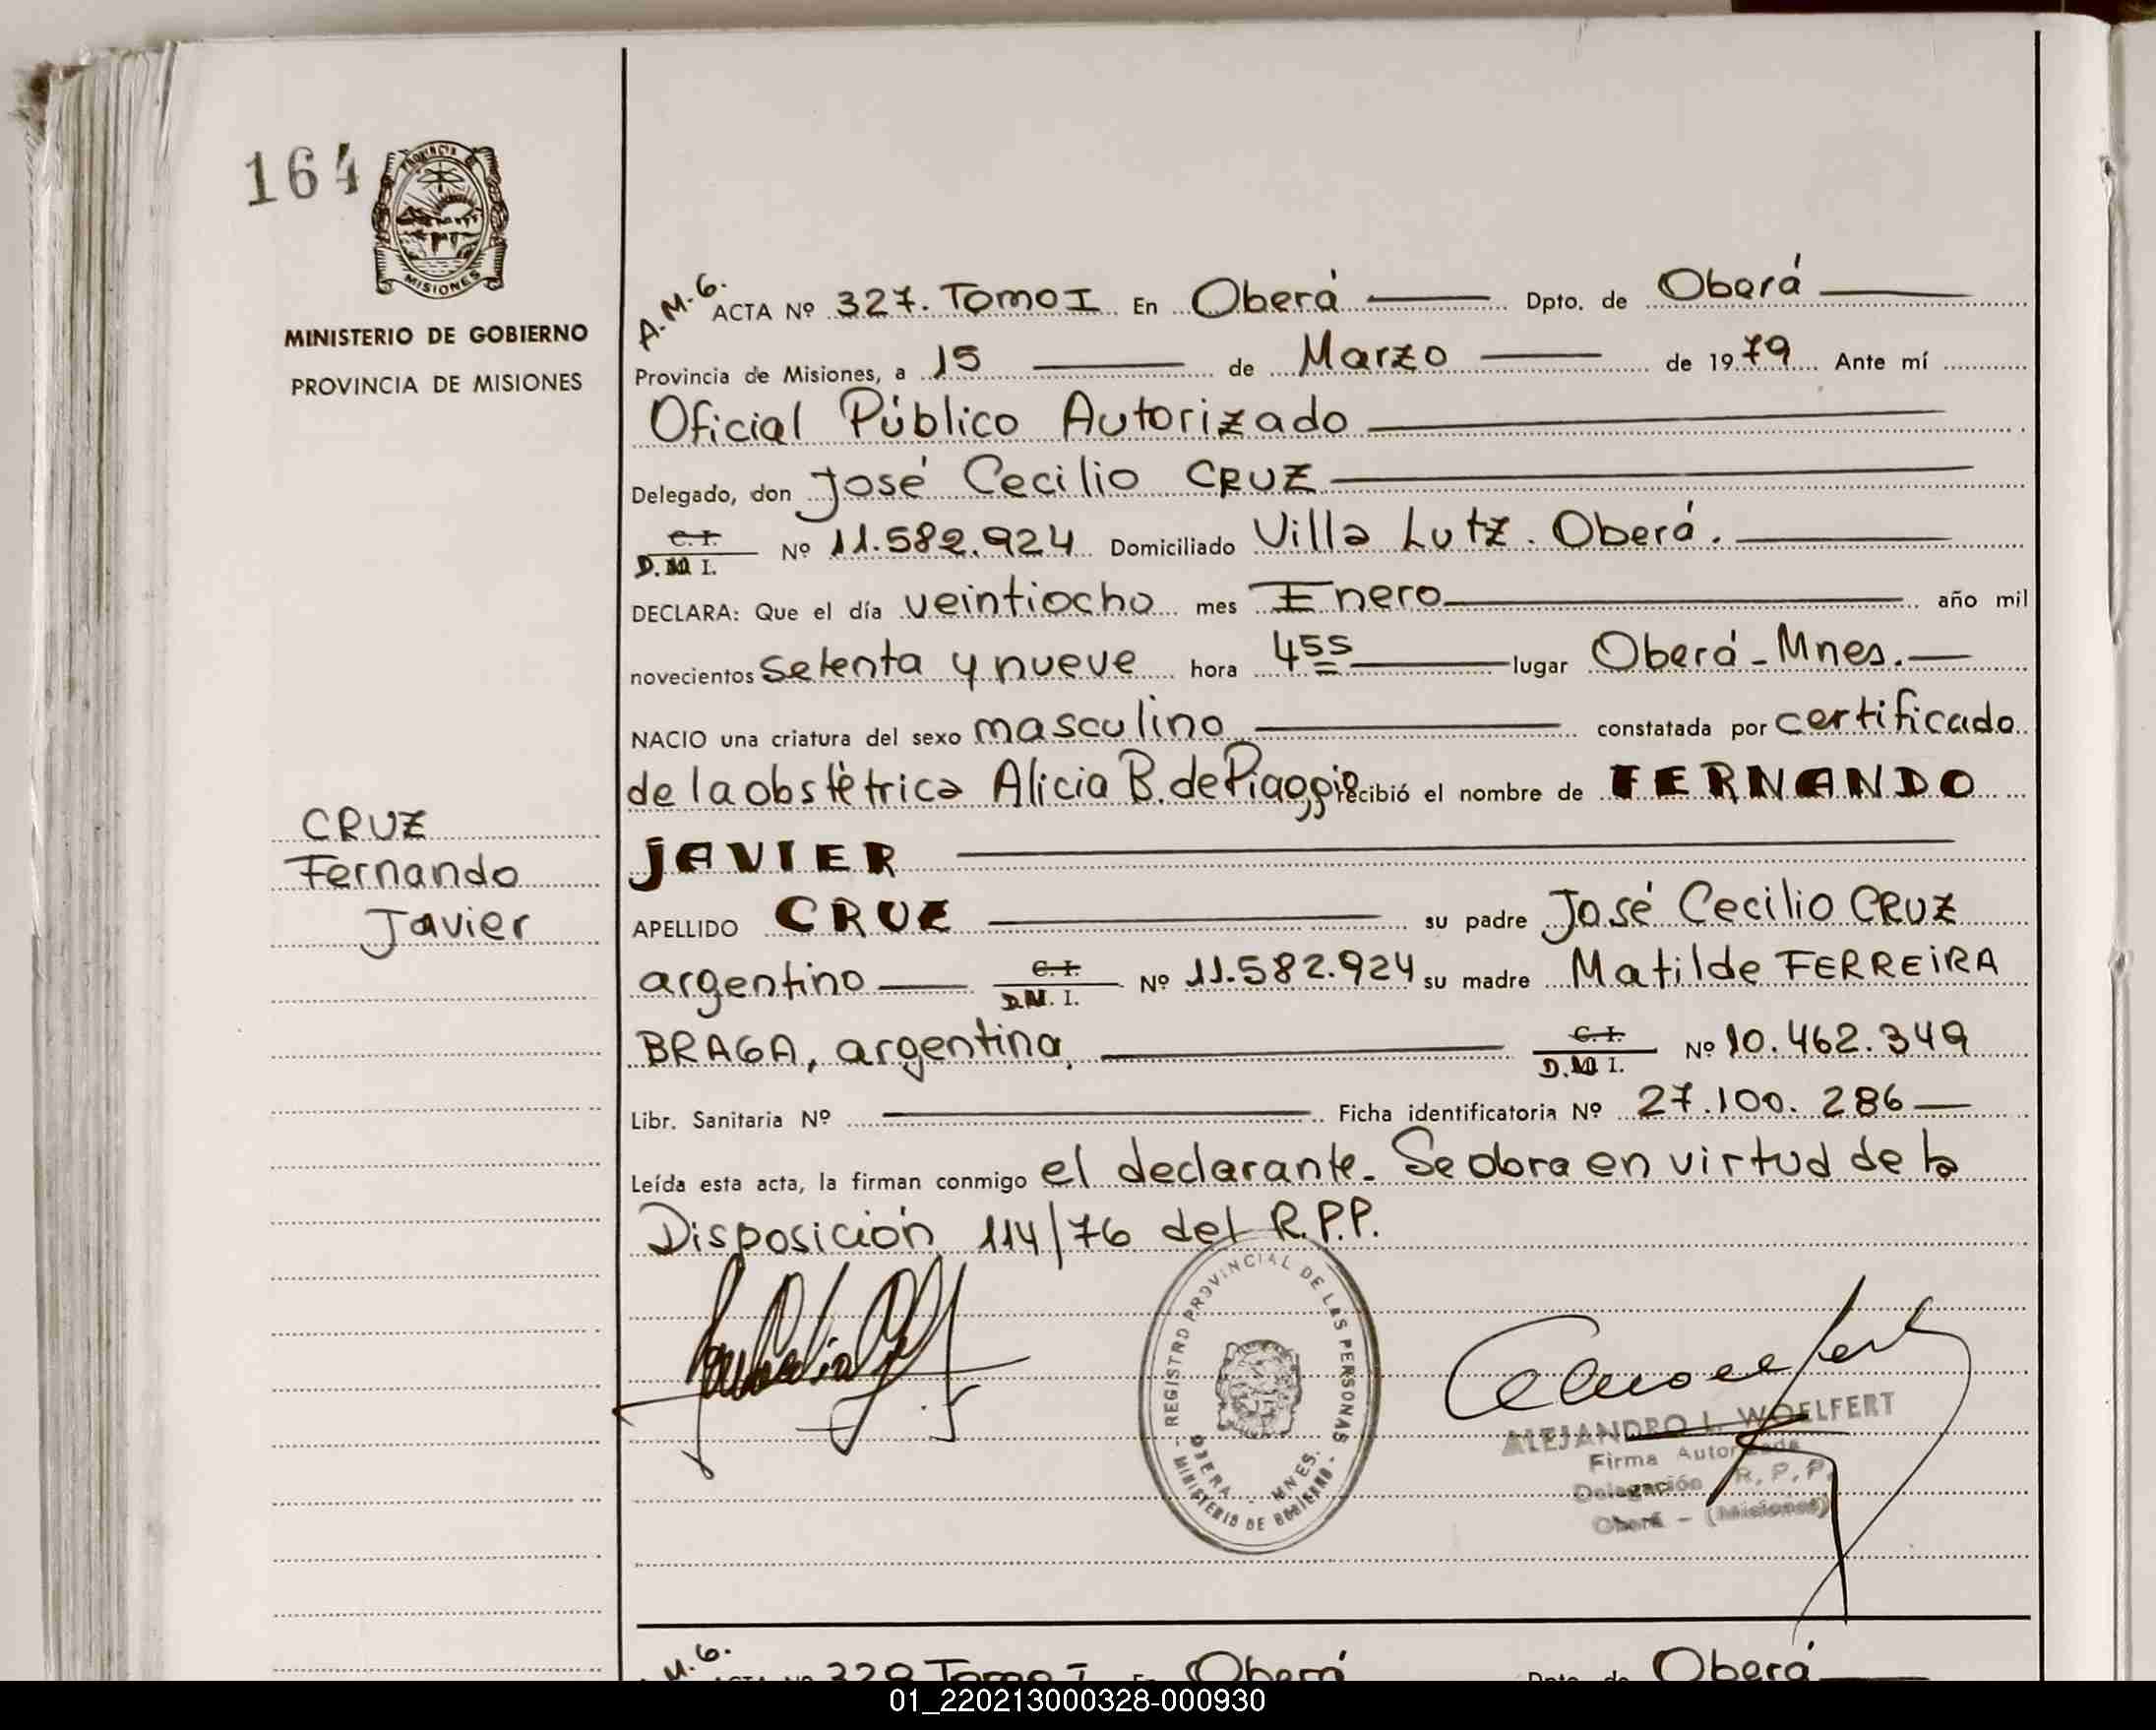 164
PROVINCIA DE
MISIONES
MINISTERIO DE GOBIERNO
PROVINCIA DE MISIONES
CRUZ
Fernando
Javier
A.M.G. ACTA Nº 327. Tomo I En Oberá Dpto. de Oberá
Provincia de Misiones, a 15 de Marzo de 1979 Ante mí
Oficial Público Autorizado
Delegado, don José Cecilio CRUZ
C. I.
D.N.I. Nº 11.582.924 Domiciliado Villa Lutz. Oberá.
DECLARA: Que el día veintiocho mes Enero año mil
novecientos setenta y nueve hora 4 55 lugar Oberá - Mnes.
NACIO una criatura del sexo masculino constatada por certificado
de la obstétrica Alicia B. de Piaggio recibió el nombre de FERNANDO
JAVIER
APELLIDO CRUZ su padre José Cecilio CRUZ
argentino C. I. D.N.I. Nº 11.582.924 su madre Matilde FERREIRA
BRAGA, argentina, C. I. D.N.I. Nº 10.462.349
Libr. Sanitaria Nº Ficha identificatoria Nº 27.100.286
Leída esta acta, la firman conmigo el declarante. Se obra en virtud de la
Disposición 114/76 del R.P.P.
- REGISTRO PROVINCIAL DE LAS PERSONAS -
OBERA - MNES.
MINISTERIO DE GOBIERNO
ALEJANDRO L. WOELFERT
Firma Autorizada
Delegación R. P. P.
Oberá - (Misiones)
M.G. ACTA Nº 328 Tomo I En Oberá Dpto. de Oberá
01_220213000328-000930